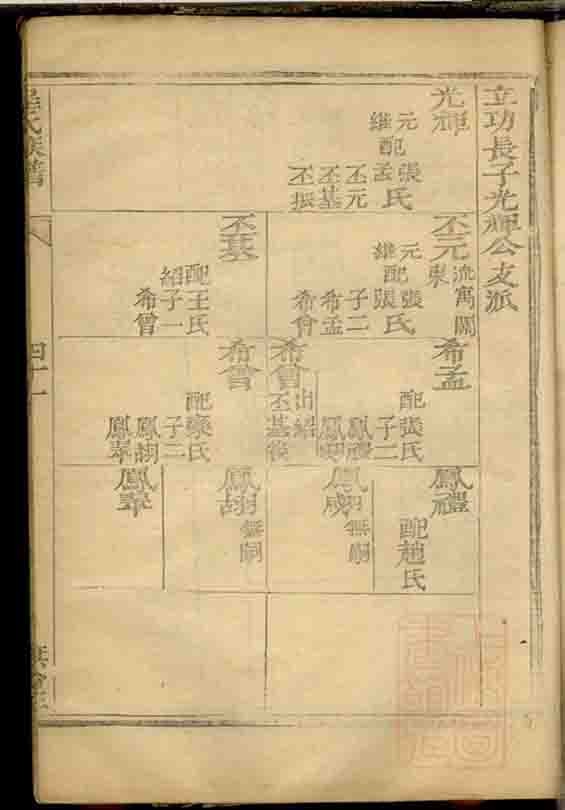 立功長子光輝公支派
光輝
元配張氏
繼 孟
丕元
丕基
丕振
丕元
流寓關
東
元配張氏
繼 張
子二
希孟
希曾
丕基
配王氏
紹子一
希曾
希孟
配張氏
子二
鳳禮
希曾
出紹
丕基後
希曾
配
氏
子二
鳳翱
鳳翠
鳳禮
配趙氏
鳳
無嗣
鳳
無嗣
鳳翠
氏族譜
四十一